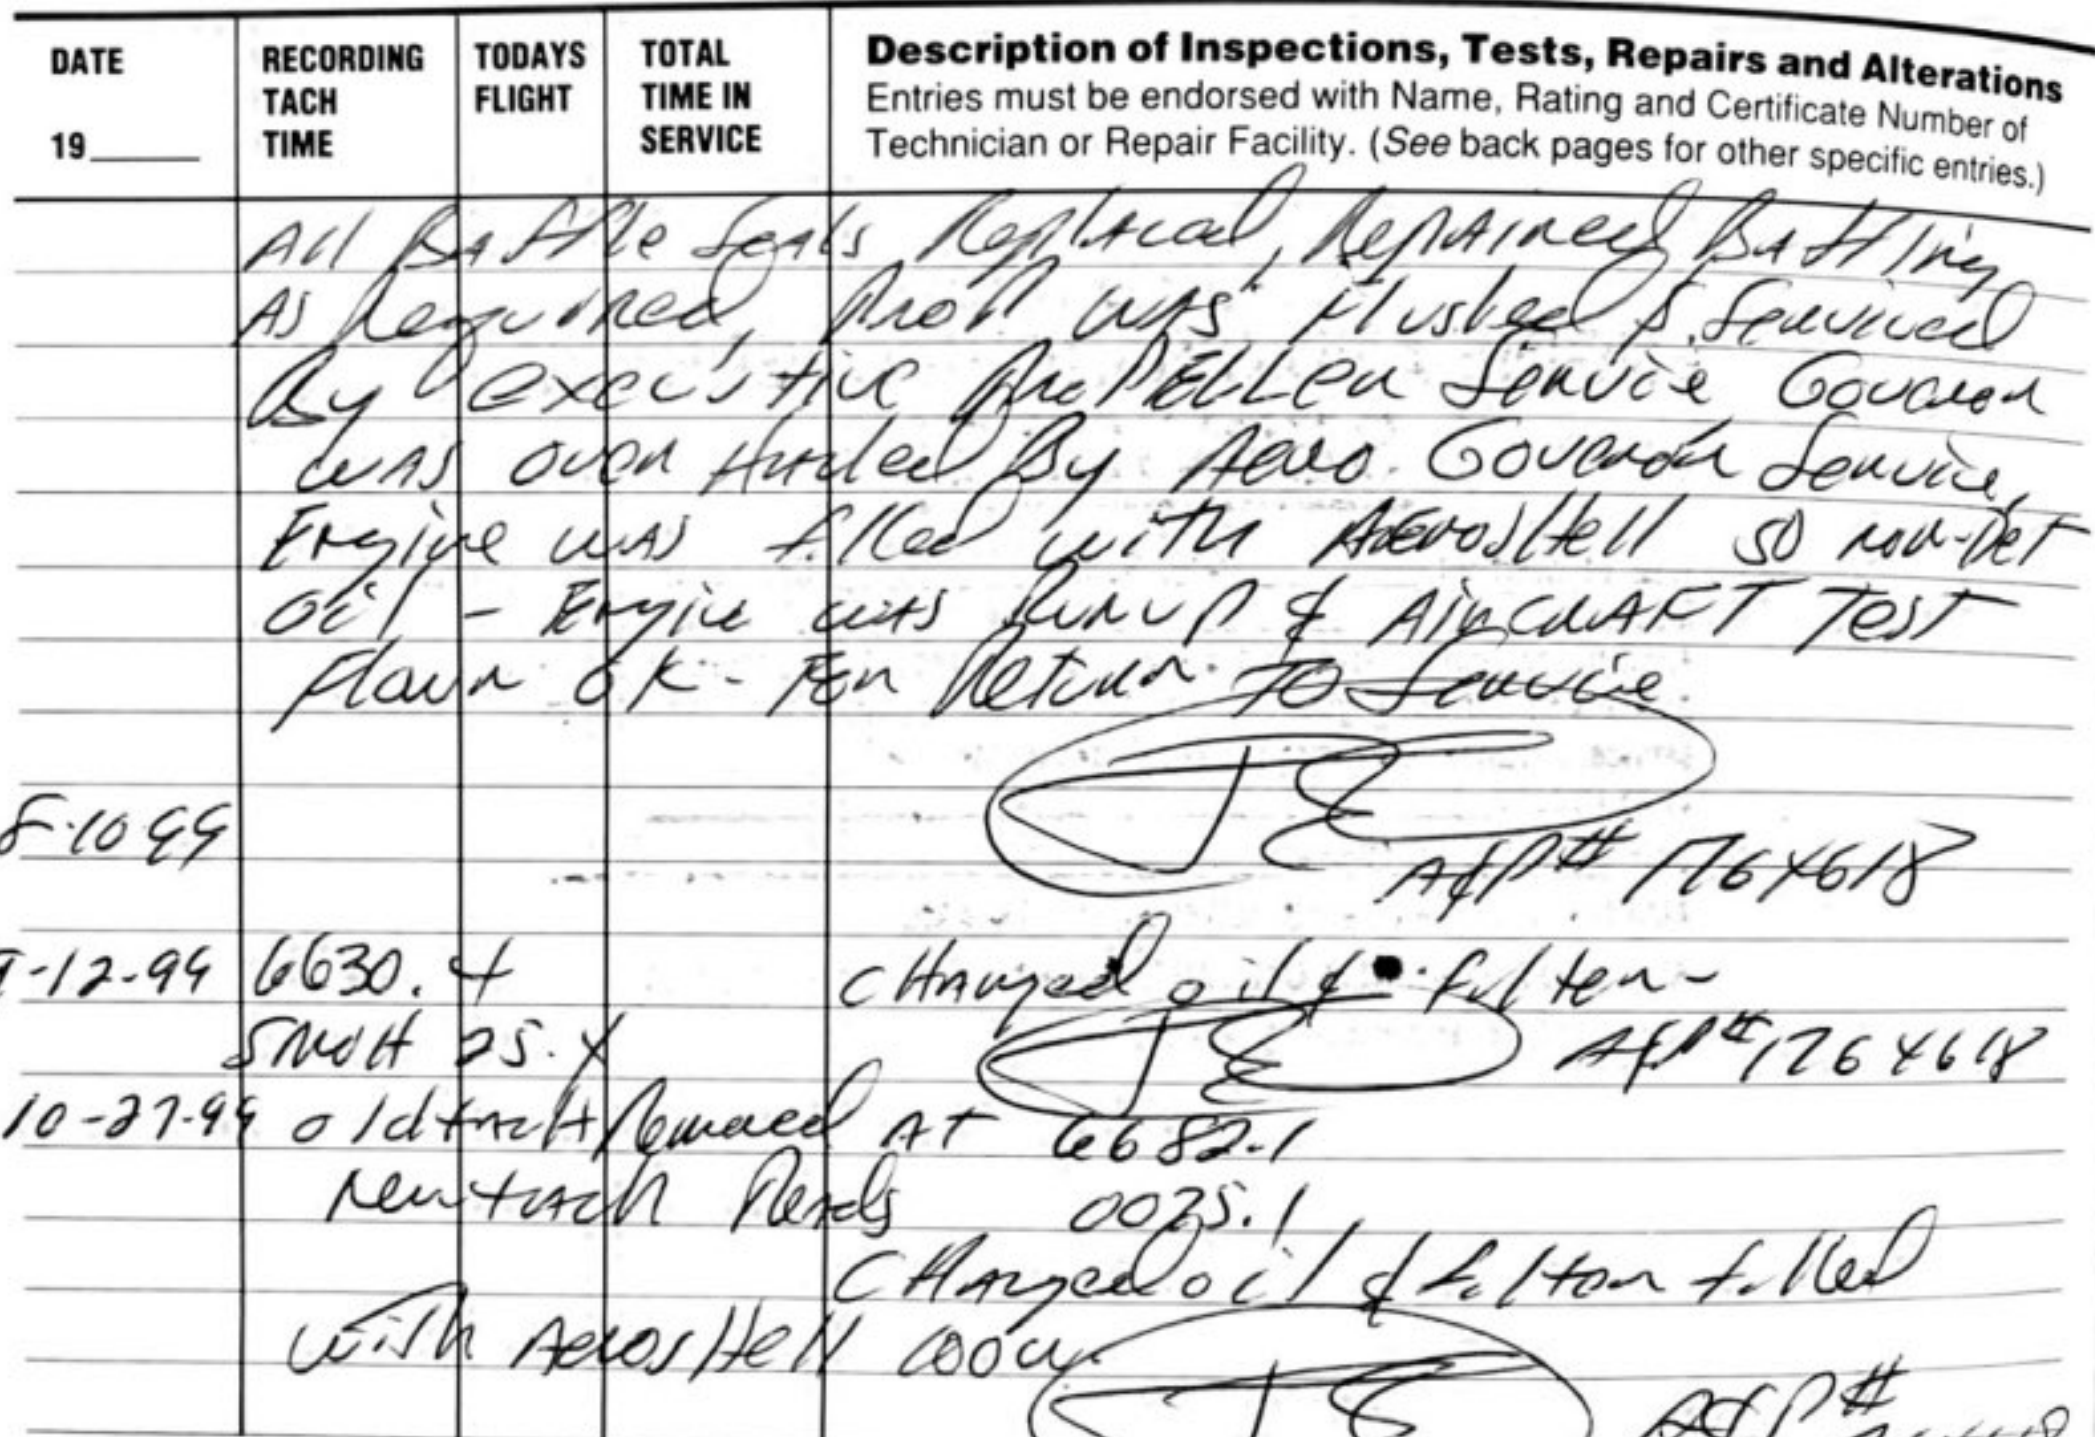 DATE
19____
RECORDING
TACH
TIME
TODAYS
FLIGHT
TOTAL
TIME IN
SERVICE
Description of Inspections, Tests, Repairs and Alterations
Entries must be endorsed with Name, Rating and Certificate Number of
Technician or Repair Facility. (See back pages for other specific entries.)
All Baffle Seals Replaced, Repaired Baffling
As Required, Prop was Flushed & Serviced
By executive Propeller Service Govenor
was over Hauled By Aero. Govenor Service,
Engine was filled with AeroShell 50 non-Det
oil - Engine was Runup & Aircraft Test
Flown OK - For Return TO Service.
8-10 99
A&P# 1764618
-12-99 6630.4 CHanged oil & filter-
SMOH 25.4 A&P# 1764618
10-27-99 old tach Removed AT 6682.1
New tach Reads 0025.1
CHanged oil & filter filled
with AeroShell 100w.
A&P#